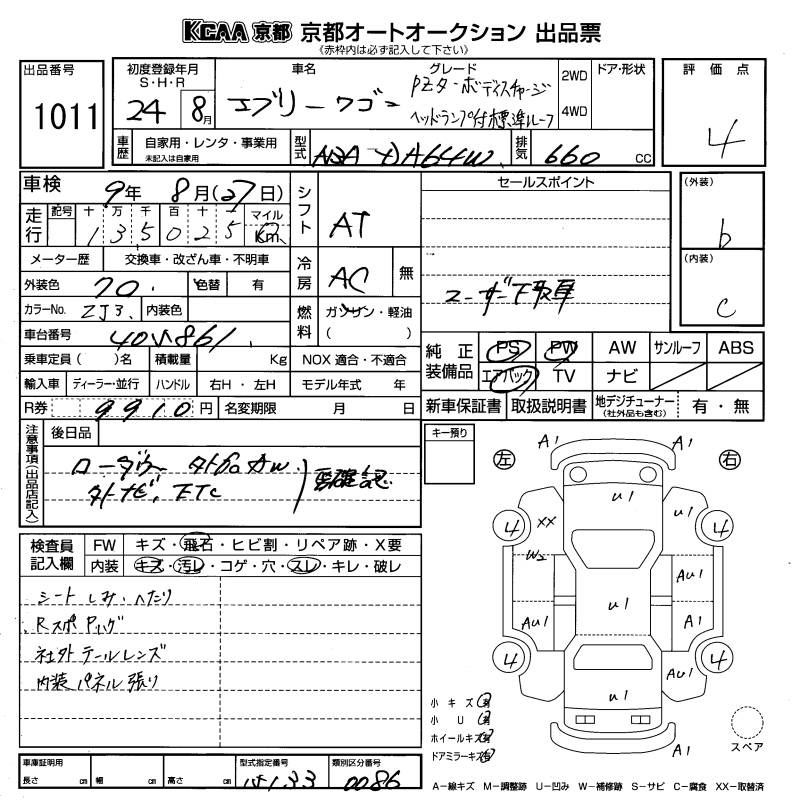 KCAA 京都 京都オートオークション 出品票
《赤枠内は必ず記入して下さい》
出品番号
1011
初度登録年月
S・H・R
24 8月
車名
エブリーワゴン
グレード
PZターボディスチャージ
ヘッドランプ付標準ルーフ
2WD
4WD
ドア・形状
評価点
4
車歴
自家用・レンタ・事業用
未記入は自家用
型式
ABA-DA64W
排気
660 CC
車検
9年 8月(27日)
走行
記号 十 万 千 百 十 一 マイル
1 3 5 0 2 5 Km
シフト
AT
セールスポイント
ユーザー下取車
(外装)
b
(内装)
C
メーター歴 交換車・改ざん車・不明車
冷房
AC 無
外装色 20. 色替 有
カラーNo. ZJ3. 内装色
燃料
ガソリン・軽油
( )
車台番号
乗車定員( )名 積載量 Kg NOX適合・不適合
輸入車 ディーラー・並行 ハンドル 右H・左H モデル年式 年
R券 9910円 名変期限 月 日
純正装備品
PS PW AW サンルーフ ABS
エアバック TV ナビ
新車保証書 取扱説明書 地デジチューナー(社外品も含む) 有・無
注意事項(出品店記入)
後日品
ローダウン 外アルミAW
外ナビ、ETC
要確認
キー預り
左
右
A1
A1
U1
XX
U1
4
4
W2
AU1
U1
AU1
A1
4
4
AU1
U1
A1
検査員記入欄
FW キズ・飛石・ヒビ割・リペア跡・X要
内装 キズ・汚レ・コゲ・穴・スレ・キレ・破レ
シートしみ・へたり
Rスポ Pハグ
社外テールレンズ
内装パネル張り
小キズ 有
小U 有
ホイールキズ 有
ドアミラーキズ 有
スペア
車庫証明用
長さ cm 幅 cm 高さ cm
型式指定番号
類別区分番号
0086
A−線キズ M−調整跡 U−凹み W−補修跡 S−サビ C−腐食 XX−取替済